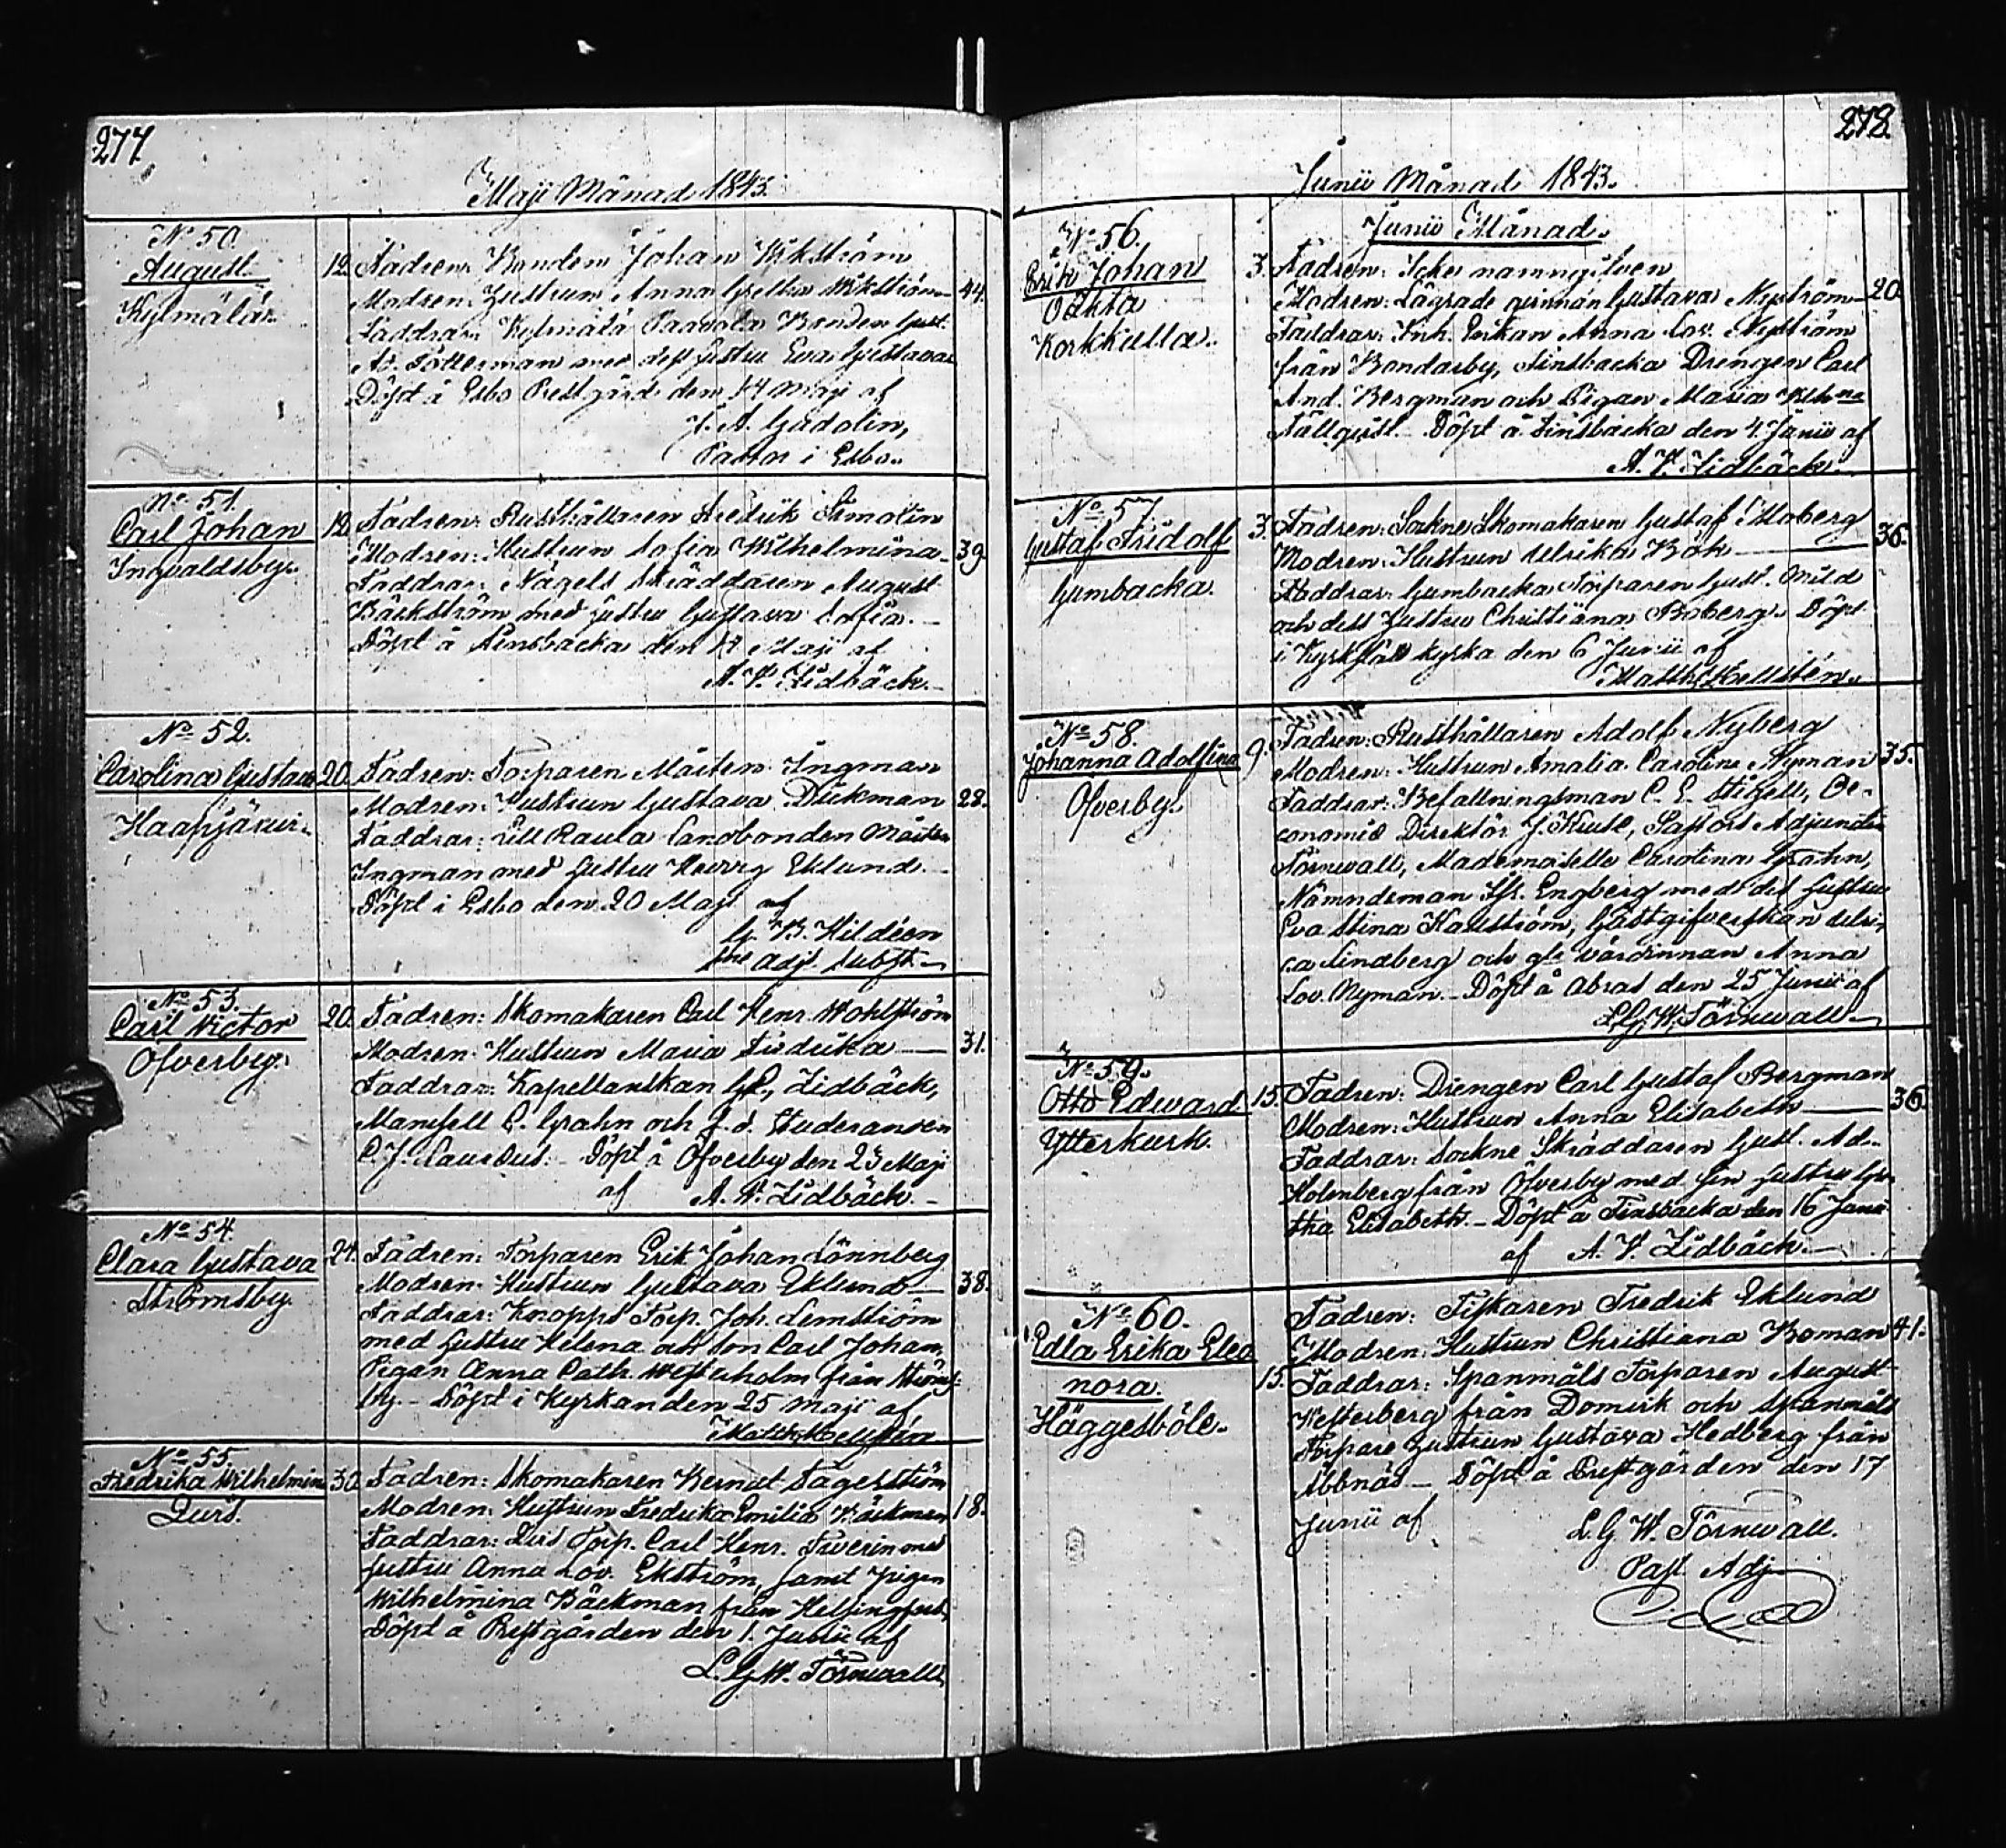 277.
Maji Månad 1843.
N:o 50.
August
Kylmälä.
12.
Fadren: Bonden Johan Wikström
Modren: Hustrun Anna Greta Wikström
44.
Faddrar: Kylmälä Paavola Bonden Gust.
Ad. Söderman med dess hustru Eva Gustava
Döpt å Esbo Prestgård den 14 Maji af
J. A. Gadolin,
Pastor i Esbo.
N:o 51.
Carl Johan
Ingvaldsby.
12.
Fadren: Rusthållaren Fredrik
Modren: Hustrun Sofia Wilhelmina
39.
Faddrar: Nägels Skräddaren August
Bäckström med hustru Gustava Sofia.
Döpt å Finsbacka den Maji af
A. W. Lidbäck.
N:o 52.
Carolina Gustava
Haapjärvi.
20.
Fadren: Torparen Mårten Ingman
Modren: Hustrun Gustava Dickman
28.
Faddrar: Lill Raula Landbonden Mårten
Ingman med hustru Hedvig Eklund.
Döpt i Esbo den 20 Maji af
G. B. Hildéen
Adj. Subst.
N:o 53.
Carl Victor
Öfverby.
20.
Fadren: Skomakaren Carl Henr. Wohlström
Modren: Hustrun Maria Fredrika
31.
Faddrar: Kapellanskan Lidbäck,
Mamsell C. Grahn och Studeranden
C. J. Döpt å Öfverby den 23 Maji
af A. W. Lidbäck.
N:o 54.
Clara Gustava
Strömsby.
24.
Fadren: Torparen Erik Johan Lönnberg
Modren: Hustrun Gustava Eklund
38.
Faddrar: Knopps Torp. Joh. Lemström
med hustru Helena och son Carl Johan,
Pigan Anna Cath. Westerholm från Ströms-
by. Döpt i Kyrkan den 25 Maji af
Matth. Hellstén.
N:o 55.
Fredrika Wilhelmina
Qvis.
30.
Fadren: Skomakaren Berndt Fagerström
Modren: Hustrun Fredrika Emilia Bäckman
18.
Faddrar: Torp. Carl Henr. Siverin med
hustru Anna Lov. Ekström, samt pigan
Wilhelmina Bäckman från Helsingfors,
Döpt å Prestgården den 1. Junii af
L. G. W. Törnwall.
278.
Junii Månad 1843.
Junii Månad.
N:o 56.
Erik Johan
Oäkta
Korkkulla.
3.
Fadren: Icke namngifven
Modren: Lägrade qvinnan Gustava Nyström
20.
Faddrar: Enkan Anna Lov. Nyström
från Bondarby, Finsbacka Drengen Carl
And. Bergman och Pigan Maria Wilh:na
Fällqvist. Döpt å Finsbacka den 4. Junii af
A. W. Lidbäck.
N:o 57.
Gustaf Fridolf
Gumbacka.
3.
Fadren: Sockne Skomakaren Gustaf Moberg
Modren: Hustrun Ulrika Bök
36.
Faddrar: Gumbacka Torparen Gust. Mild
och dess hustru Christiana Broberg. Döpt
i Kyrkslätt kyrka den 6 Junii af
Matth. Hellstén.
N:o 58.
Johanna Adolfina
Öfverby.
9.
Fadren: Rusthållaren Adolf Nyberg
Modren: Hustrun Amalia Carolina Nyman
35.
Faddrar: Befallningsman C. E. Stigell, Oe-
conomie Direktör J. Kruse, Pastors Adjuncten
Törnwall, Mademoiselle Carolina Grahn,
Nämndeman Engberg med dess hustru
Eva Stina Hallström, Gästgifverskan Ulri-
ca Lindberg och värdinnan Anna
Lov. Nyman. Döpt å Abras den 25 Junii af
L. G. W. Törnwall.
N:o 59.
Otto Edward
Ytterkurk.
15.
Fadren: Drengen Carl Gustaf Bergman
Modren: Hustrun Anna Elisabeth
36.
Faddrar: Sockne Skräddaren Gust. Ad.
Holmberg från Öfverby med sin hustru Gre-
tha Elisabeth. Döpt å Finsbacka den 16 Junii
af A. W. Lidbäck.
N:o 60.
Edla Erika Eleo
nora.
Häggesböle.
15.
Fadren: Fiskaren Fredrik Eklund
Modren: Hustrun Christiana Boman
41.
Faddrar: Spanmåls Torparen August
Westerberg från Domsik och Spanmåls
Torpare hustrun Gustava Hedberg från
Åbbnäs. Döpt å Prestgården den 17
Junii af
L. G. W. Törnwall.
Past. Adj.